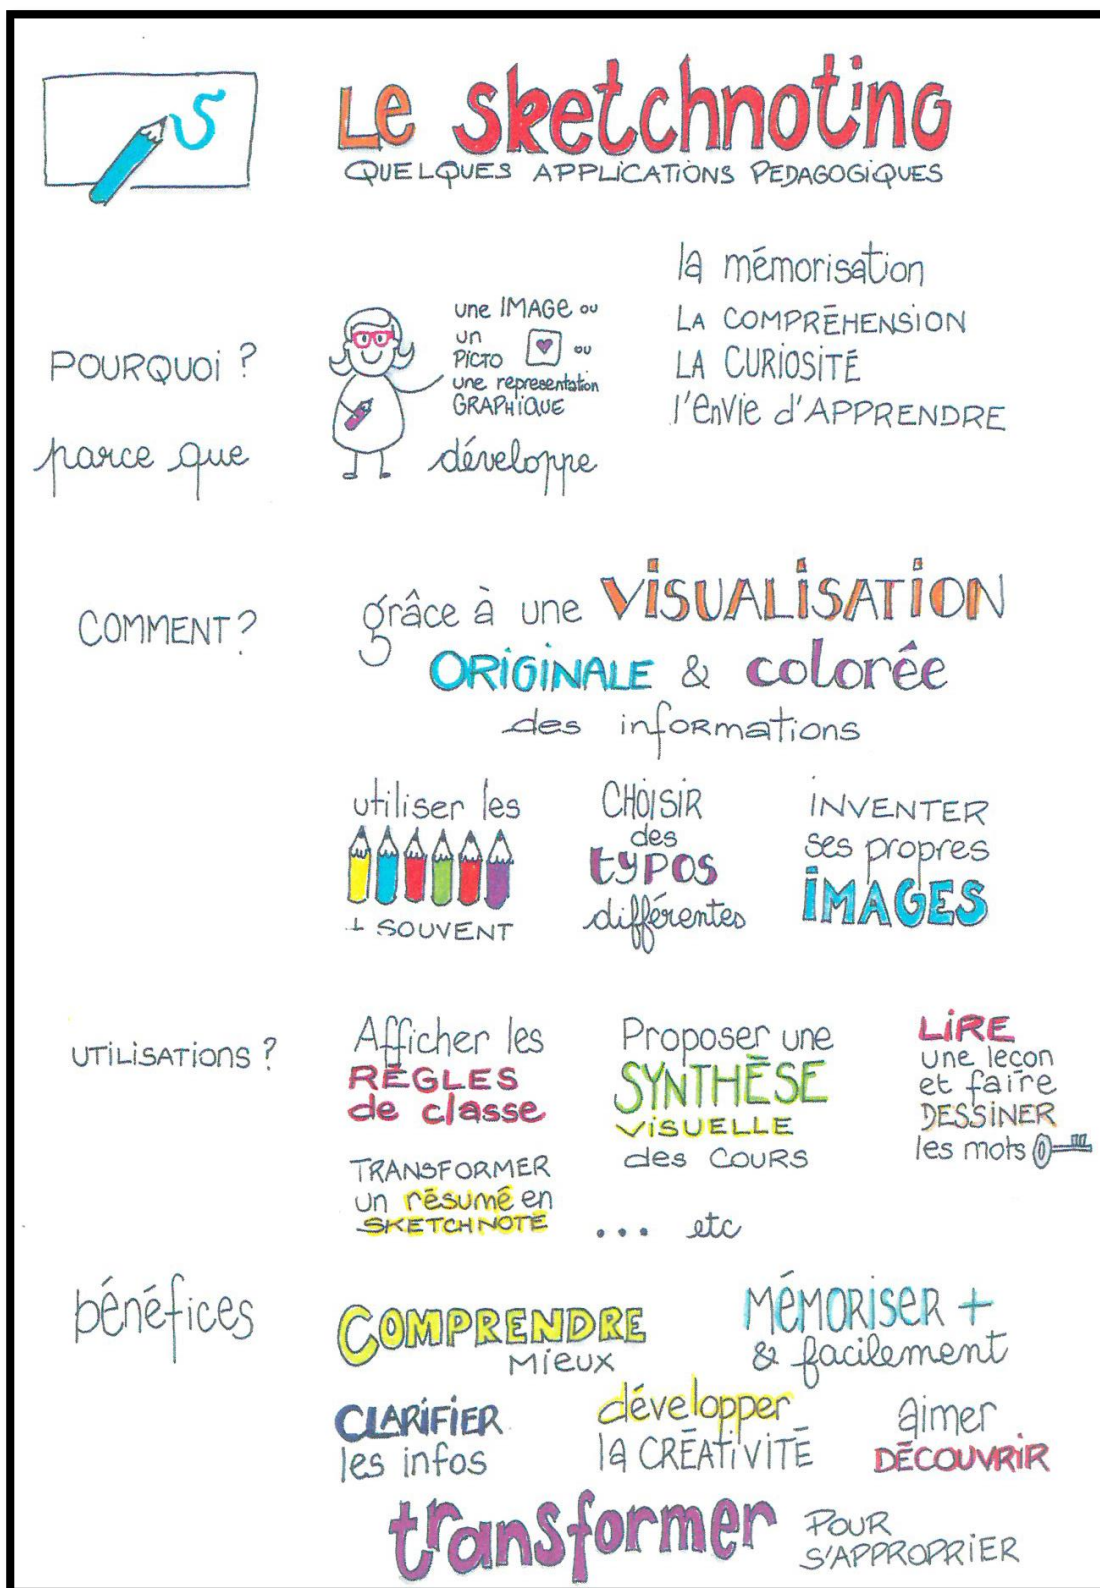 S
Le sketchnoting
QUELQUES APPLICATIONS PEDAGOGIQUES
POURQUOI ?
parce que
une IMAGE ou
un
PICTO ou
une representation
GRAPHIQUE
développe
la mémorisation
LA COMPRÉHENSION
LA CURIOSITÉ
l'envie d'APPRENDRE
COMMENT ?
grâce à une VISUALISATION
ORIGINALE & colorée
des informations
utiliser les
+ SOUVENT
CHOISIR
des
typos
différentes
INVENTER
ses propres
IMAGES
UTILISATIONS ?
Afficher les
RÈGLES
de classe
Proposer une
SYNTHÈSE
VISUELLE
des COURS
LIRE
une leçon
et faire
DESSINER
les mots
TRANSFORMER
un résumé en
SKETCHNOTE
... etc
bénéfices
COMPRENDRE
MIEUX
MÉMORISER +
& facilement
CLARIFIER
les infos
développer
la CRÉATIVITÉ
aimer
DÉCOUVRIR
transformer POUR
S'APPROPRIER